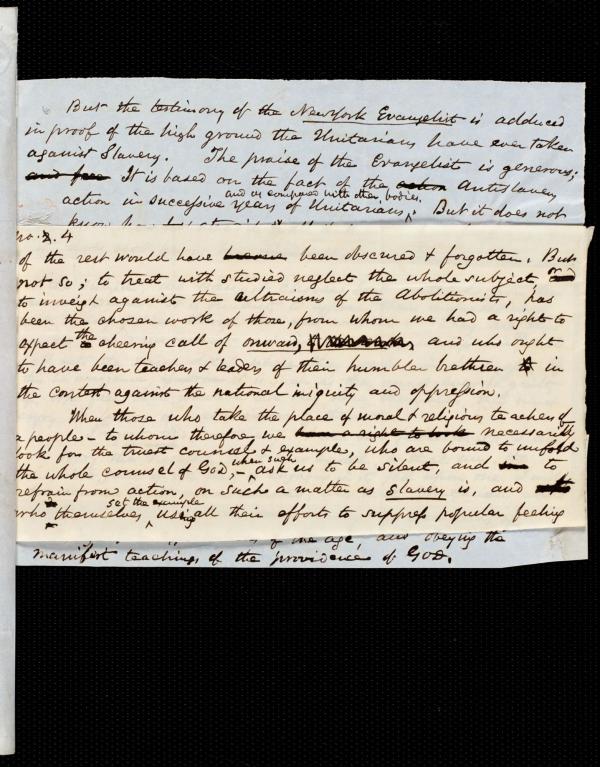 But the testimony of the New York Evangelist is adduced
in proof of the high ground the Unitarians have ever taken
against Slavery. The praise of the Evangelist is generous;
and free It is based on the fact of the action Antislavery
and as compared with other bodies.
action in successive years of Unitarians, But it does not
No. 3. 4
of the rest would have become been obscured & forgotten. But
not so; to treat with studied neglect the whole subject, and
to inveigh against the ultraisms of the Abolitionists, has
been the chosen work of those, from whom we had a right to
expect the cheering call of onward, and who ought
to have been teachers & leaders of their humbler brethren in
the contest against the national iniquity and oppression.
When those who take the place of moral & religious teachers of
a people - to whom therefore we have a right to look necessarily
look for the truest counsel & example, who are bound to unfold
the whole counsel of God, - when such ask us to be silent, and to
refrain from action, on such a matter as slavery is, and
set the example
who themselves, using all their efforts to suppress popular feeling
of the age, and obeying the
manifest teachings of the providence of GOD.